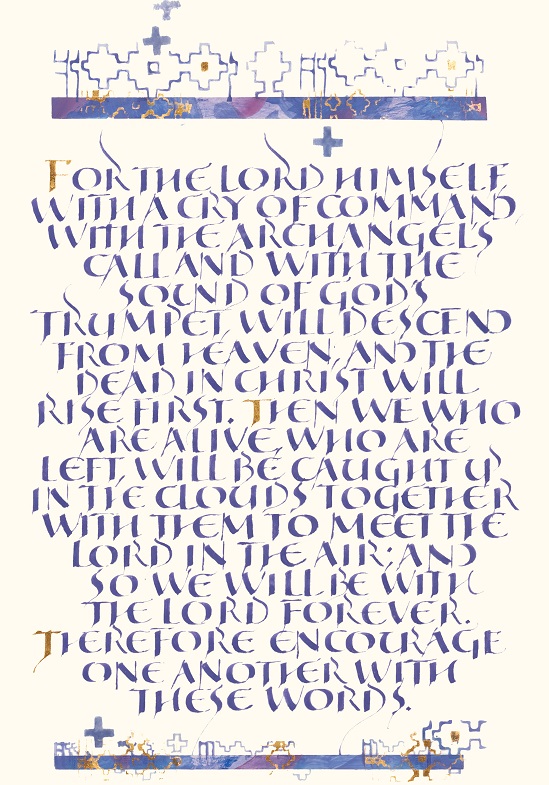 FOR THE LORD HIMSELF,
WITH A CRY OF COMMAND,
WITH THE ARCHANGEL'S
CALL AND WITH THE
SOUND OF GOD'S
TRUMPET, WILL DESCEND
FROM HEAVEN, AND THE
DEAD IN CHRIST WILL
RISE FIRST. THEN WE WHO
ARE ALIVE, WHO ARE
LEFT, WILL BE CAUGHT UP
IN THE CLOUDS TOGETHER
WITH THEM TO MEET THE
LORD IN THE AIR; AND
SO WE WILL BE WITH
THE LORD FOREVER.
THEREFORE ENCOURAGE
ONE ANOTHER WITH
THESE WORDS.